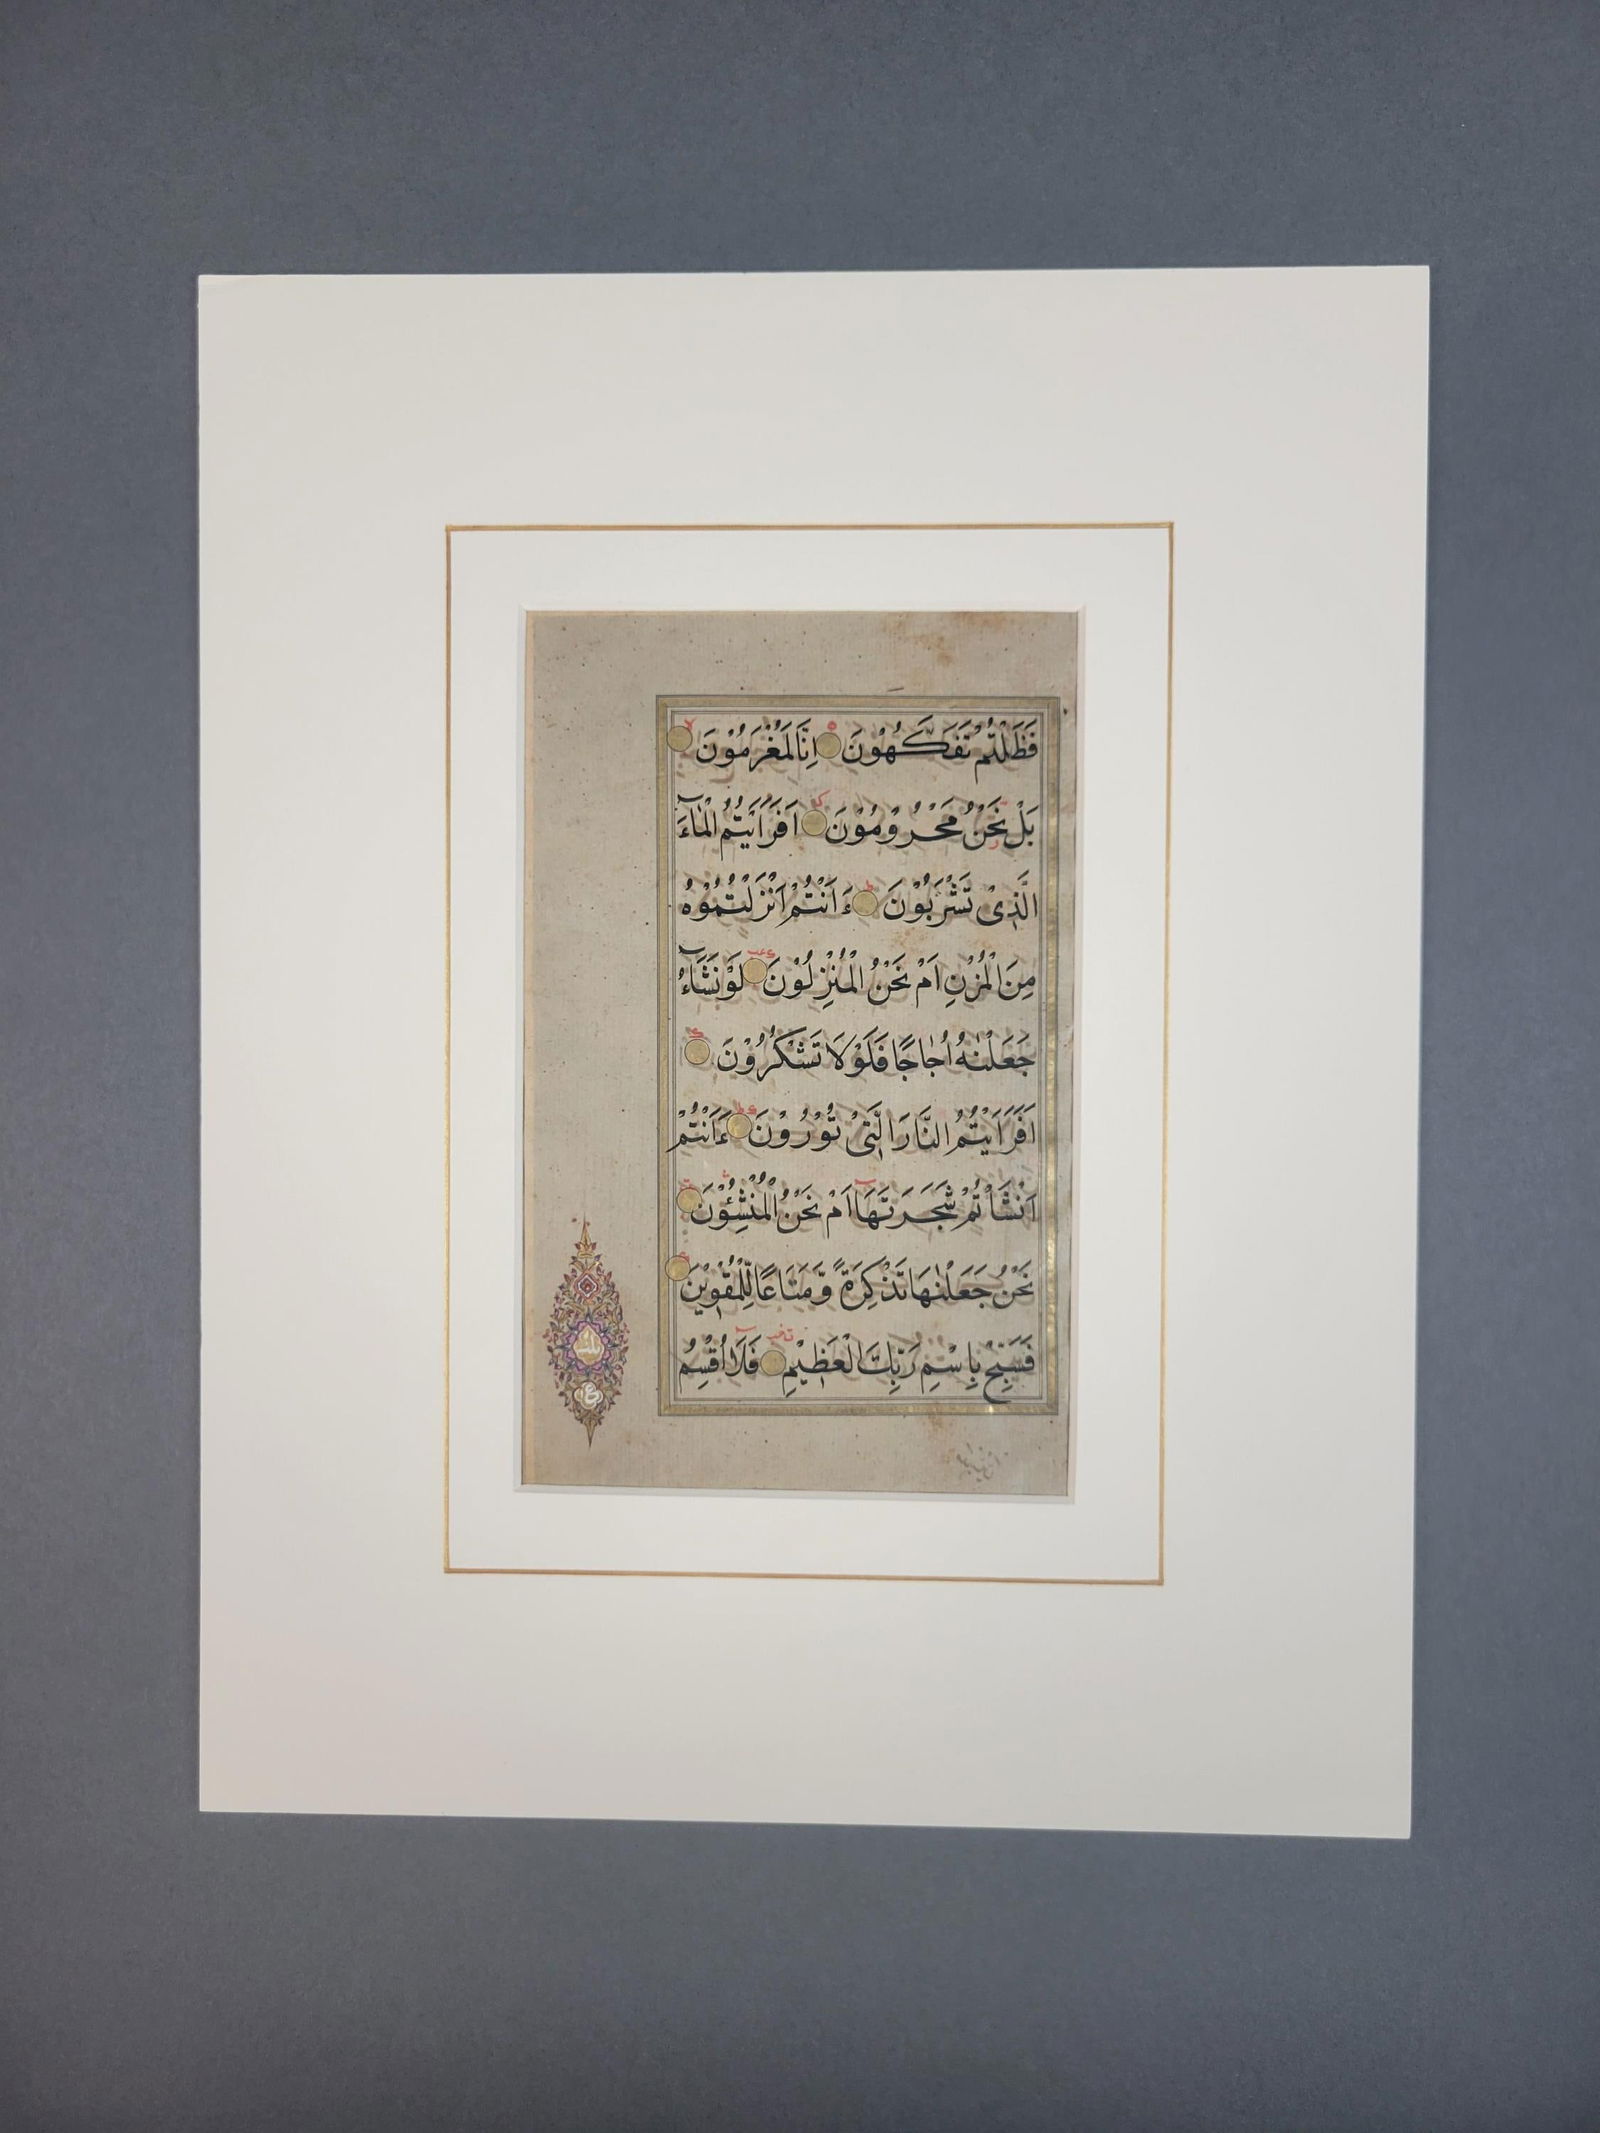 فَظَلْتُمْ تَفَكَّهُوْنَ اِنَّا لَمُغْرَمُوْنَ
بَلْ نَحْنُ مَحْرُوْمُوْنَ اَفَرَاَيْتُمُ الْمَاءَ
الَّذِىْ تَشْرَبُوْنَ ءَاَنْتُمْ اَنْزَلْتُمُوْهُ
مِنَ الْمُزْنِ اَمْ نَحْنُ الْمُنْزِلُوْنَ لَوْ نَشَاءُ
جَعَلْنٰهُ اُجَاجًا فَلَوْلَا تَشْكُرُوْنَ
اَفَرَاَيْتُمُ النَّارَ الَّتِىْ تُوْرُوْنَ ءَاَنْتُمْ
اَنْشَاْتُمْ شَجَرَتَهَا اَمْ نَحْنُ الْمُنْشِئُوْنَ
نَحْنُ جَعَلْنٰهَا تَذْكِرَةً وَّمَتَاعًا لِّلْمُقْوِيْنَ
فَسَبِّحْ بِاسْمِ رَبِّكَ الْعَظِيْمِ فَلَا اُقْسِمُ